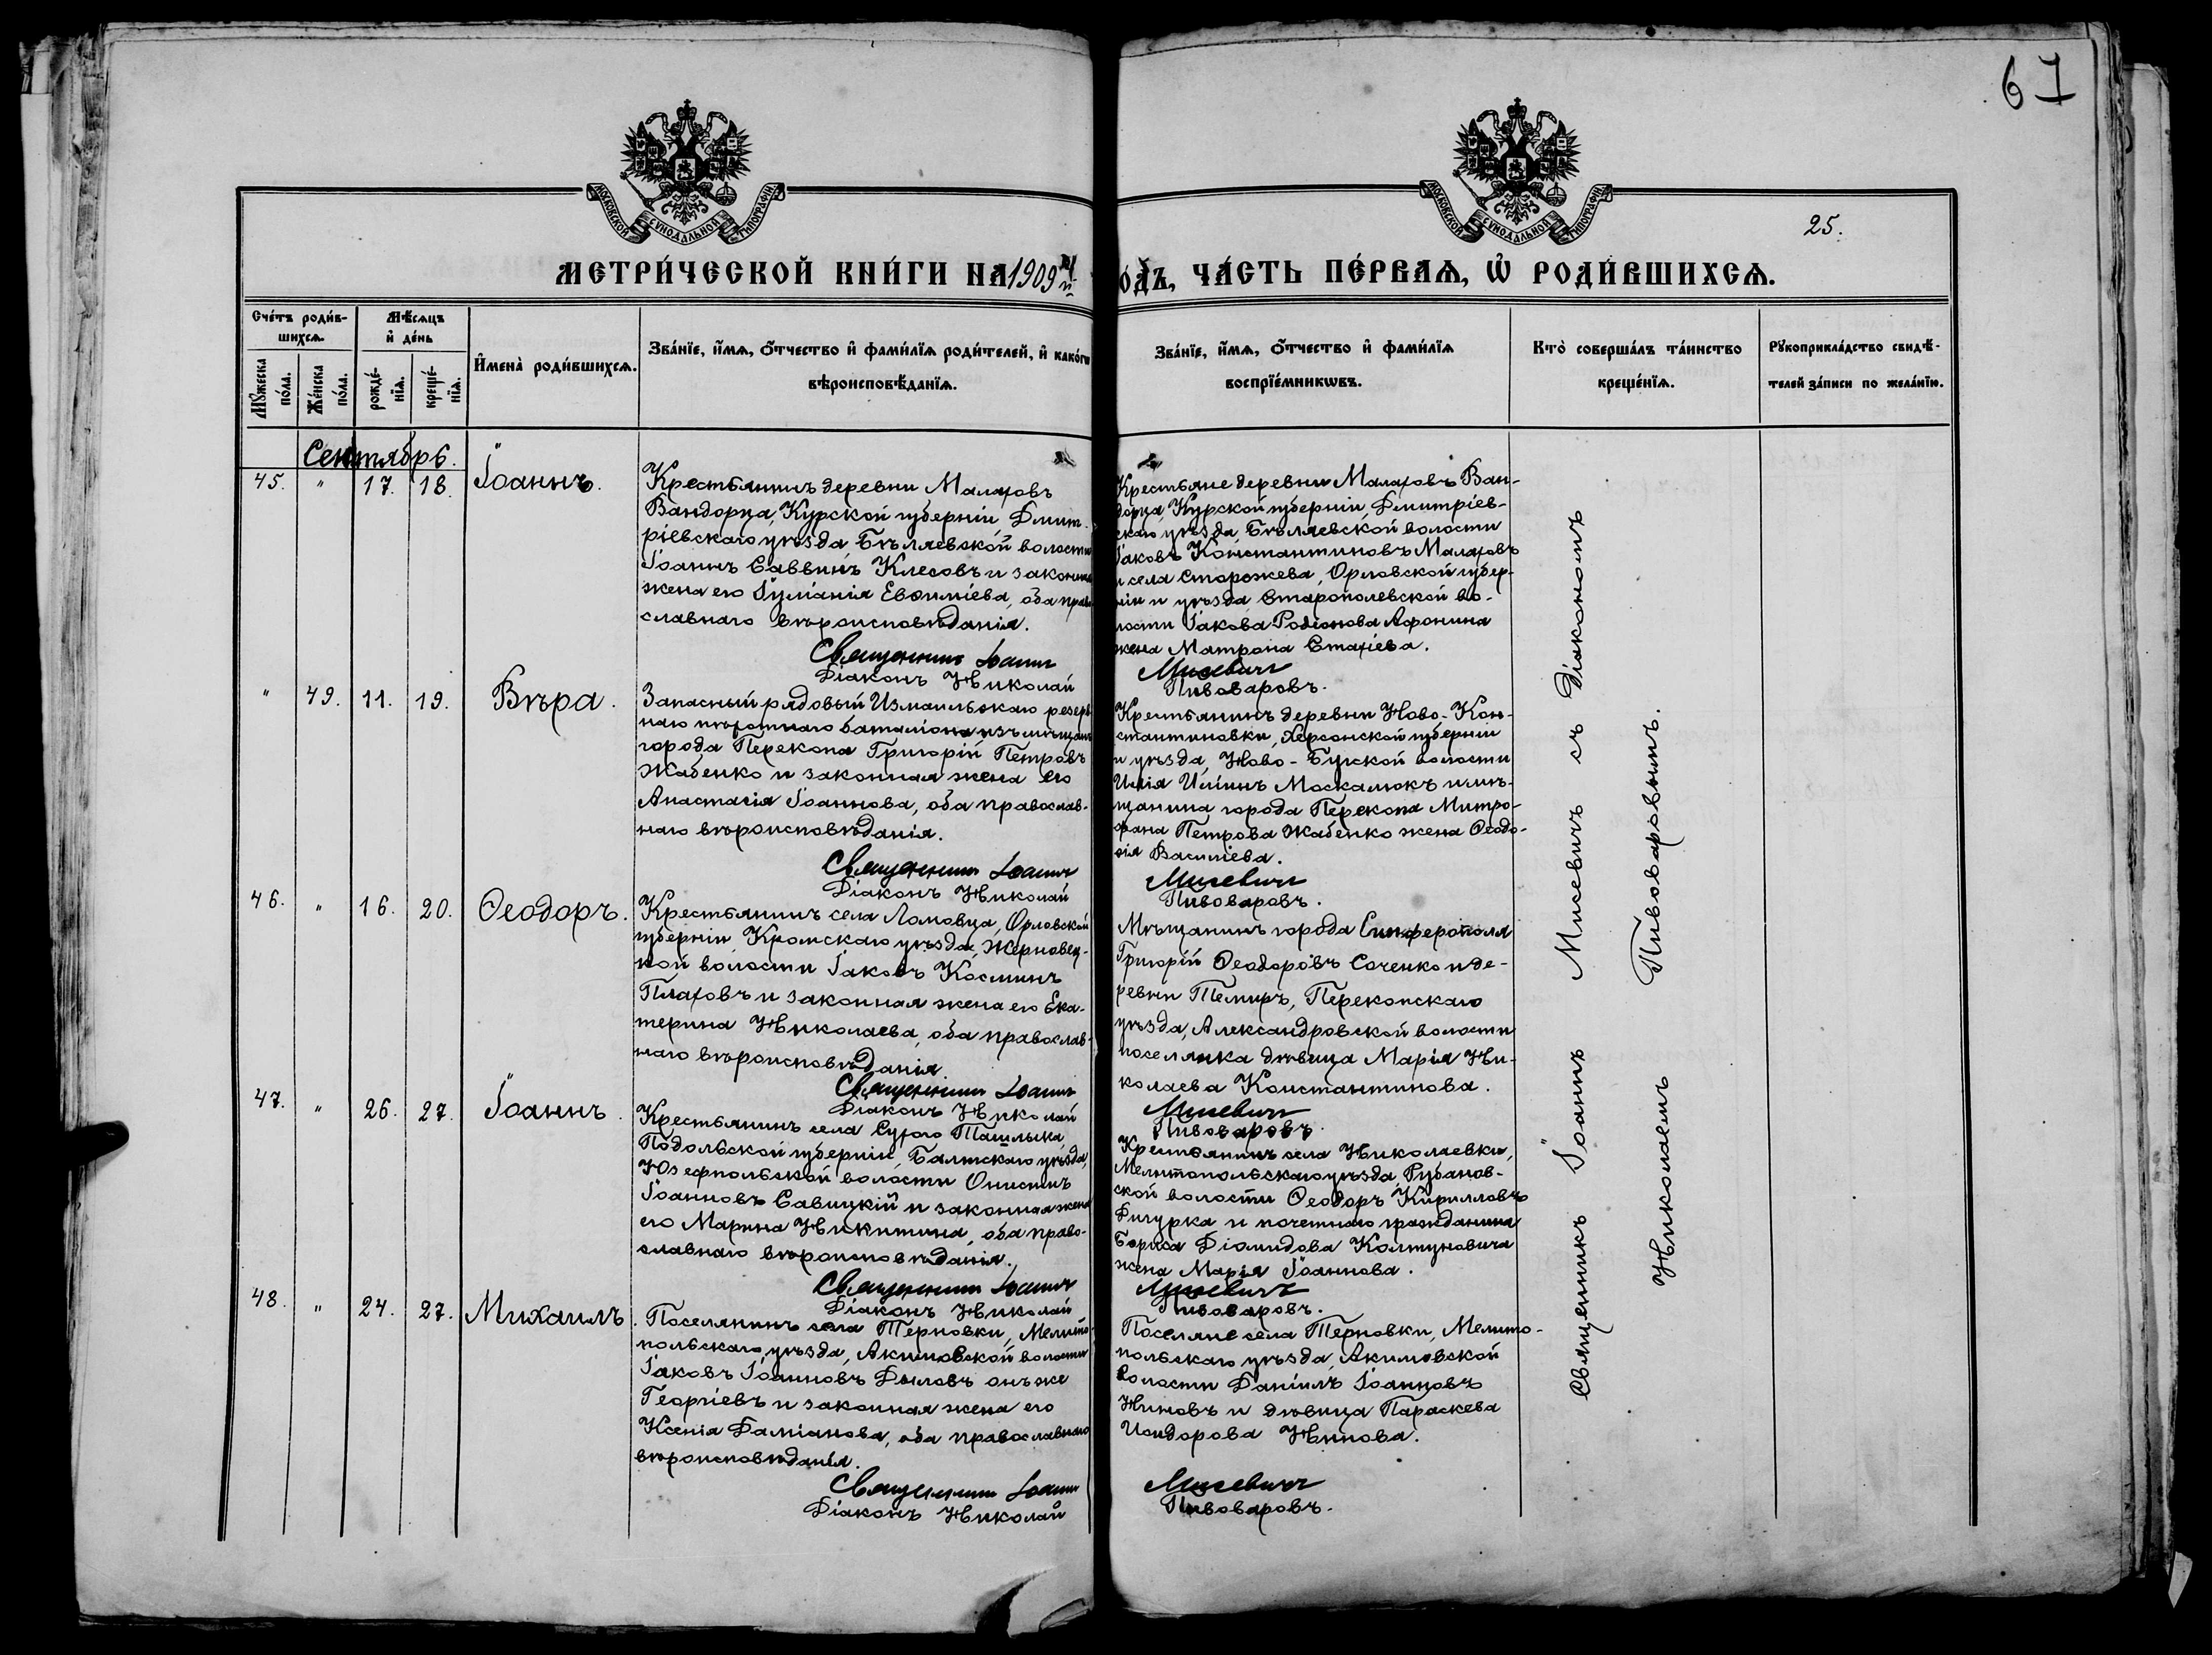 67
МОСКОВСКОЙ СѴНОДАЛЬНОЙ ТИПОГРАФІИ
МОСКОВСКОЙ СѴНОДАЛЬНОЙ ТИПОГРАФІИ
25.
МЕТРИ́ЧЕСКОЙ КНИ́ГИ НА 1909 й
О́ДЪ, ЧА́СТЬ ПЕ́РВАѦ, Ѡ҆ РОДИ́ВШИХСѦ.
Сче́тъ роди́в-
шихсѧ.
Мѣ́сѧцъ
и҆ де́нь
Мꙋ́жеска
по́ла.
Же́нска
по́ла.
рожде́-
нїѧ.
креще́-
нїѧ.
И҆мена̀ роди́вшихсѧ.
Зва́нїе, и҆́мѧ, о҆́тчество и҆ фами́лїѧ роди́телей, и҆ како́гѡ
вѣроисповѣ́данїѧ.
Зва́нїе, и҆́мѧ, о҆́тчество и҆ фами́лїѧ
воспрїе́мникѡвъ.
Кто̀ соверша́лъ та́инство
креще́нїѧ.
Рꙋкоприкла́дство свидѣ́-
телей за́писи по жела́нїю.
Сентябрь.
45. " 17. 18. Іоаннъ.
Крестьянинъ деревни Малаховъ
Вандорца, Курской губерніи, Дмит-
ріевскаго уѣзда, Бѣляевской волости
Іоаннъ Саввинъ Клесовъ и законная
жена его Іуліанія Евѳиміева, оба право-
славнаго вѣроисповѣданія.
Священникъ Іоаннъ
Діаконъ Николай
Крестьяне деревни Малаховъ Ван-
дорца, Курской губерніи, Дмитріев-
скаго уѣзда, Бѣляевской волости
Іаковъ Константиновъ Малаховъ
и села Сторожева, Орловской губер-
ніи и уѣзда, Старополевской во-
лости Іакова Родіонова Афонина
жена Матрона Стахіева.
Мисевичъ
Пивоваровъ.
" 49. 11. 19. Вѣра.
Запасный рядовый Измаильскаго резерв-
наго пѣхотнаго баталіона изъ мѣщанъ
города Перекопа Григорій Петровъ
Жабенко и законная жена его
Анастасія Іоаннова, оба православ-
наго вѣроисповѣданія.
Священникъ Іоаннъ
Діаконъ Николай
Крестьянинъ деревни Ново-Кон-
стантиновки, Херсонской губерніи
и уѣзда, Ново-Бугской волости
Илія Иліинъ Москалюкъ и мѣ-
щанина города Перекопа Митро-
фана Петрова Жабенко жена Ѳеодо-
сія Васильева.
Мисевичъ
Пивоваровъ.
46. " 16. 20. Ѳеодоръ.
Крестьянинъ села Ломовца, Орловской
губерніи, Кромскаго уѣзда, Жерновец-
кой волости Іаковъ Косминъ
Плаховъ и законная жена его Ека-
терина Николаева, оба православ-
наго вѣроисповѣданія.
Священникъ Іоаннъ
Діаконъ Николай
Мѣщанинъ города Симферополя
Григорій Ѳеодоровъ Соченко и де-
ревни Темиръ, Перекопскаго
уѣзда, Александровской волости
поселянка дѣвица Марія Ни-
колаева Константинова.
Мисевичъ
Пивоваровъ.
47. " 26. 27. Іоаннъ.
Крестьянинъ села Сухого Ташлыка,
Подольской губерніи, Балтскаго уѣзда,
Юзефпольской волости Онисимъ
Іоанновъ Савицкій и законная жена
его Марина Никитина, оба право-
славнаго вѣроисповѣданія.
Священникъ Іоаннъ
Діаконъ Николай
Крестьянинъ села Николаевки,
Мелитопольскаго уѣзда, Рубанов-
ской волости Ѳеодоръ Кирилловъ
Дигурка и почетнаго гражданина
Бориса Діомидова Колтуновича
жена Марія Іоаннова.
Мисевичъ
Пивоваровъ.
48. " 24. 27. Михаилъ.
Поселянинъ села Терновки, Мелито-
польскаго уѣзда, Акимовской волости
Іаковъ Іоанновъ Дыловъ онъ же
Георгіевъ и законная жена его
Ксенія Даміанова, оба православнаго
вѣроисповѣданія.
Священникъ Іоаннъ
Діаконъ Николай
Поселяне села Терновки, Мелито-
польскаго уѣзда, Акимовской
волости Даніилъ Іоанновъ
Ниновъ и дѣвица Параскева
Исидорова Нинова.
Мисевичъ
Пивоваровъ.
Священникъ Іоаннъ Мисевичъ съ Діакономъ
Николаемъ Пивоваровымъ.